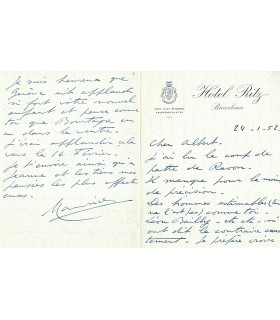 Hotel Ritz
Barcelona
24-1-52
Cher Albert.
J'ai lu le coup de
patte de Ravon.
Il manque pour le moins
de précision.
Des hommes estimables (tu
ne l'es pas) comme toi-
Léon Bailby - etc - etc
ont dit le contraire
tement. Je préfère croire
Je suis heureux que
Genève ait applaudi
si fort votre nouvel
enfant et pense comme
toi que Bourtage en
a dans le ventre.
J'irai applaudir
vers le 16 Février.
Je t'envoie ainsi qu'à
Jeanne et les tiens mes
pensées les plus affect
ueuses.
Maurice